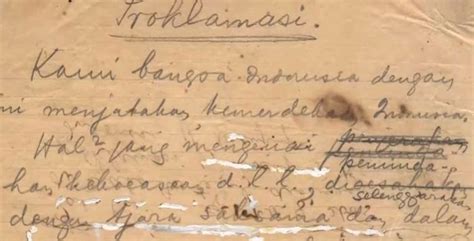 Proklamasi.
Kami bangsa Indonesia dengan
ni menjatakan kemerdekaan Indonesia.
Hal2 jang mengenai
peminda-
han kekoeasaan d.l.l.,
diselenggarakan
dengan tjara saksama dan dalam